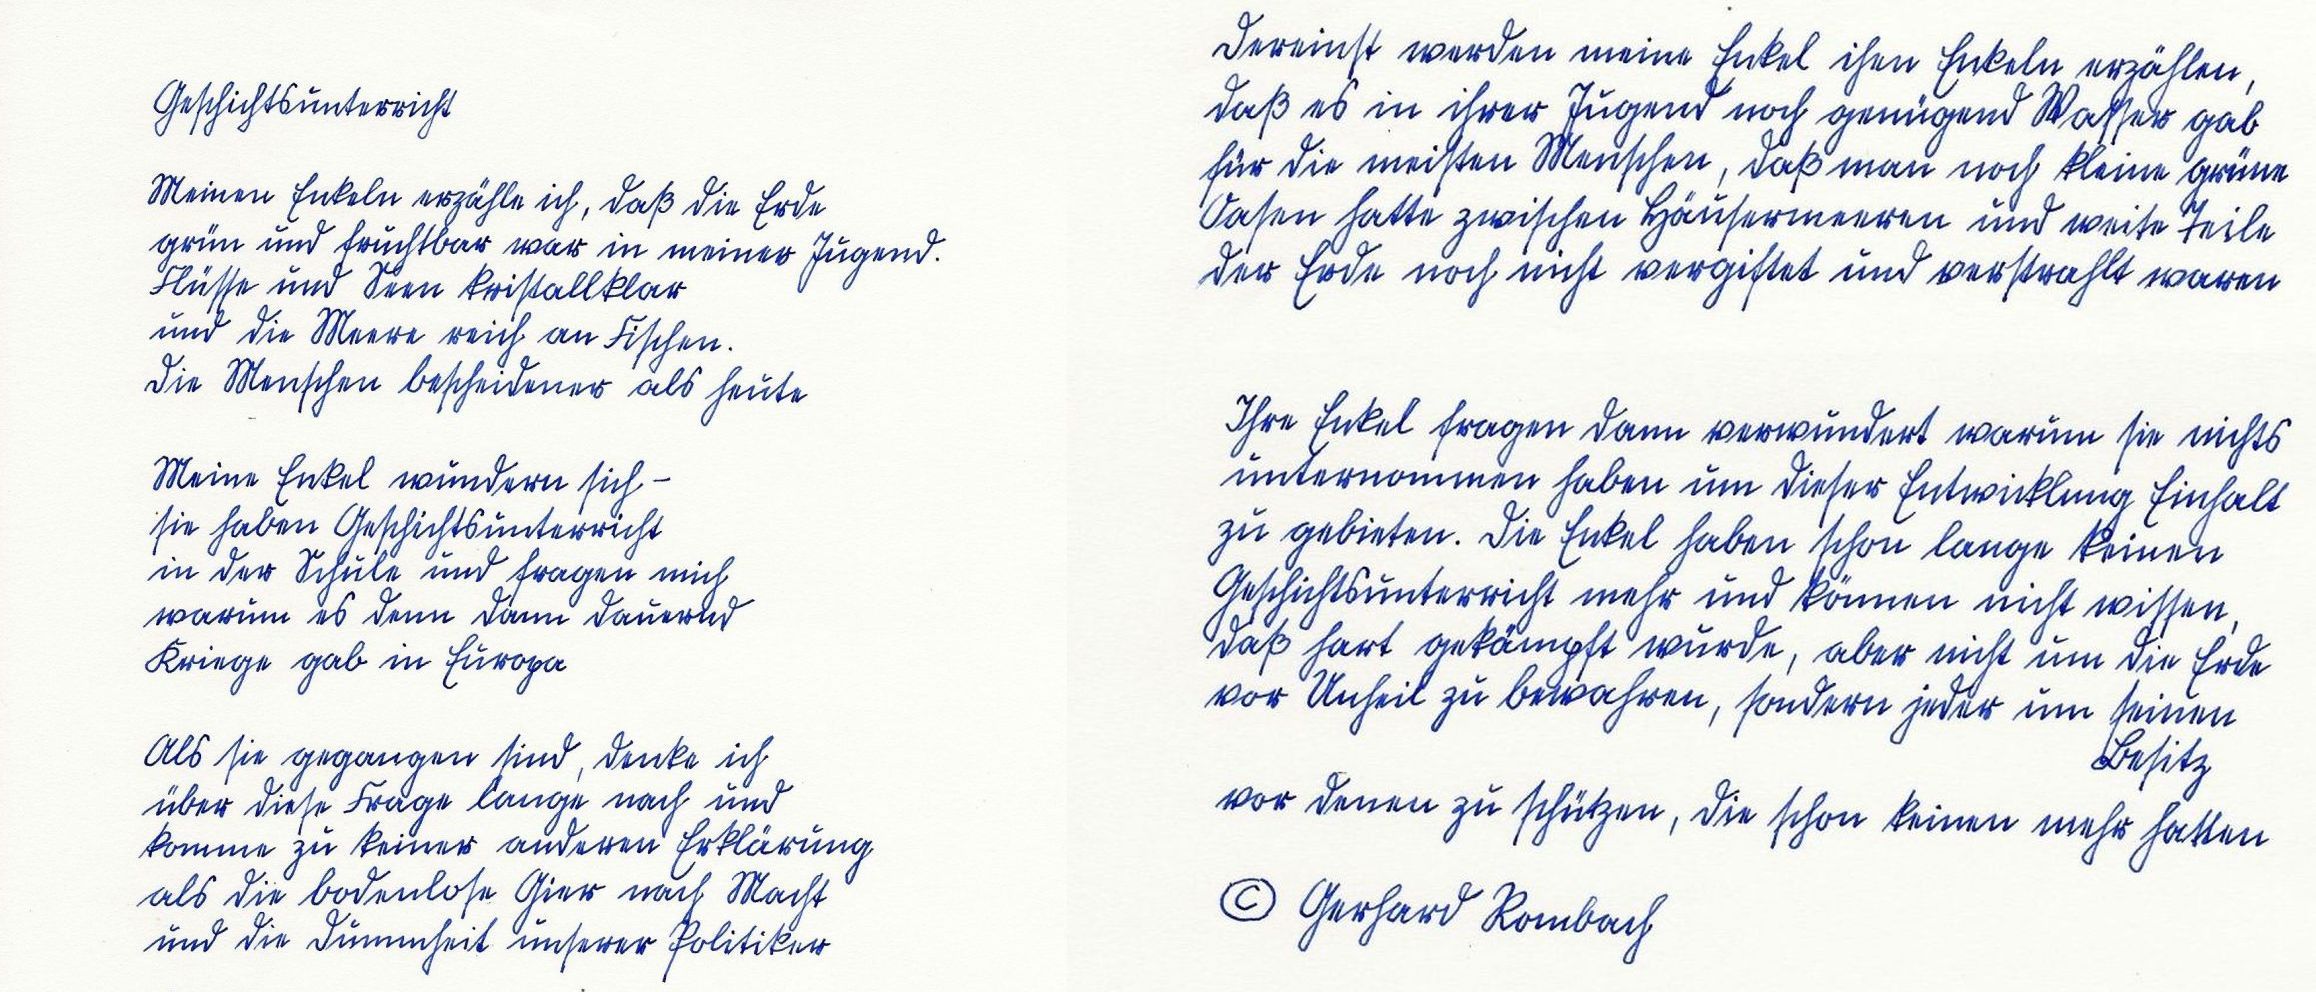 Geschichtsunterricht
Meinen Enkeln erzähle ich, daß die Erde
grün und fruchtbar war in meiner Jugend.
Flüsse und Seen kristallklar
und die Meere reich an Fischen.
Die Menschen bescheidener als heute
Meine Enkel wundern sich -
sie haben Geschichtsunterricht
in der Schule und fragen mich
warum es denn dann dauernd
Kriege gab in Europa
Als sie gegangen sind, denke ich
über diese Frage lange nach und
komme zu keiner anderen Erklärung
als die bodenlose Gier nach Macht
und die Dummheit unserer Politiker
Dereinst werden meine Enkel ihen Enkeln erzählen,
daß es in ihrer Jugend noch genügend Wasser gab
für die meisten Menschen, daß man noch kleine grüne
Oasen hatte zwischen Häusermeeren und weite Teile
der Erde noch nicht vergiftet und verstrahlt waren
Ihre Enkel fragen dann verwundert warum sie nichts
unternommen haben um dieser Entwicklung Einhalt
zu gebieten. Die Enkel haben schon lange keinen
Geschichtsunterricht mehr und können nicht wissen,
daß hart gekämpft wurde, aber nicht um die Erde
vor Unheil zu bewahren, sondern jeder um seinen
Besitz
vor denen zu schützen, die schon keinen mehr hatten
© Gerhard Rombach